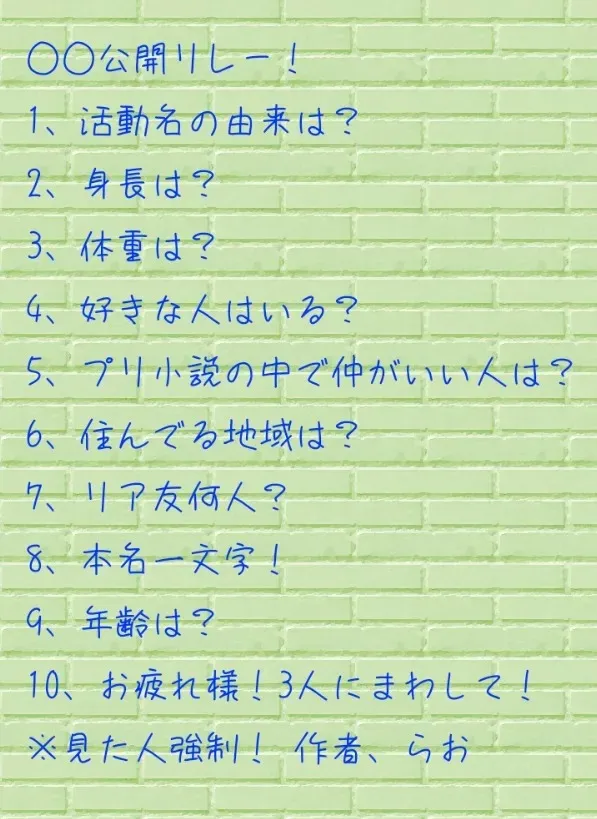 〇〇公開リレー！
1、活動名の由来は？
2、身長は？
3、体重は？
4、好きな人はいる？
5、プリ小説の中で仲がいい人は？
6、住んでる地域は？
7、リア友何人？
8、本名一文字！
9、年齢は？
10、お疲れ様！3人にまわして！
※見た人強制！ 作者、らお